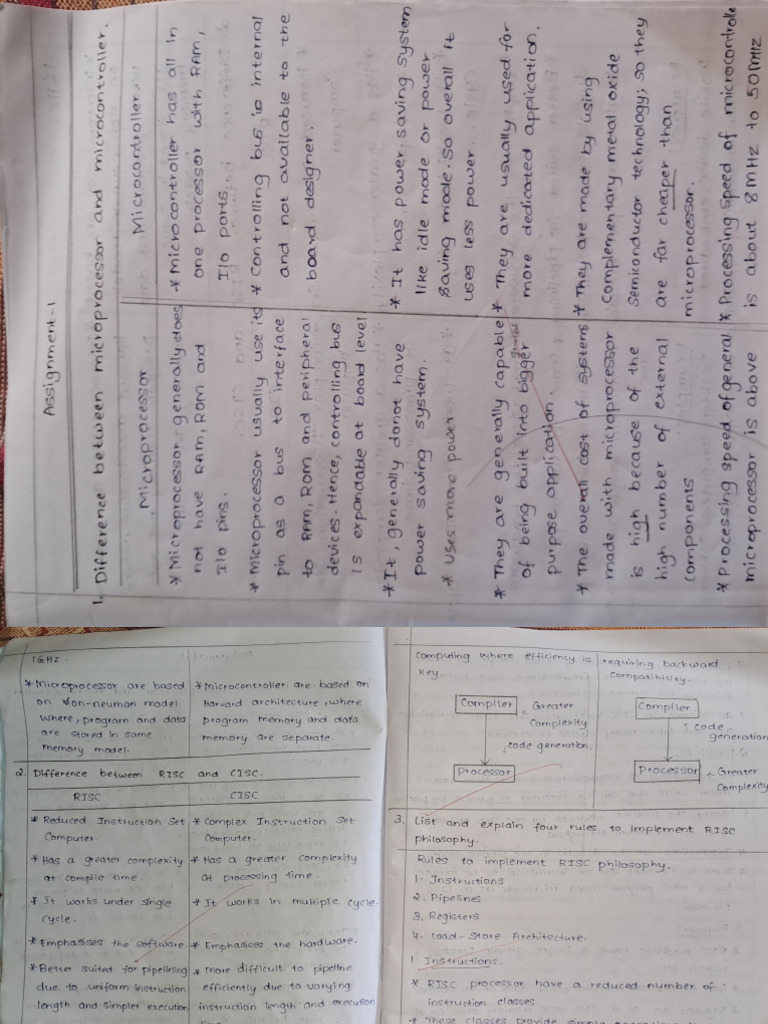 Assignment-1
1. Difference between microprocessor and microcontroller.
Microprocessor
* Microprocessor generally does
not have RAM, ROM and
I/o pins.
* Microprocessor usually use its
pin as a bus to interface
to RAM, ROM and peripheral
devices. Hence, controlling bus
is expandable at board level
* It, generally donot have
power saving system.
* Uses more power
* They are generally capable
of being built into bigger
general
purpose application.
* The overall cost of systems
made with microprocessor
is high because of the
high number of external
components
* Processing speed of general
microprocessor is above
Microcontroller
* Microcontroller has all in
one processor with RAM,
I/o ports.
* Controlling bus is internal
and not available to the
board designer.
* It has power saving system
like idle mode or power
saving mode. So overall it
uses less power.
* They are usually used for
more dedicated application.
* They are made by using
Complementary metal oxide
Semiconductor technology; so they
are far cheaper than
microprocessor.
* Processing speed of microcontrolle
is about 8MHz to 50MHz
1GHz.
* Microprocessor are based
on Von-neuman model
where, program and data
are stored in same
memory model.
* Microcontroller are based on
Harvard architecture, where
program memory and data
memory are separate.
2. Difference between RISC and CISC.
RISC
* Reduced Instruction Set
Computer
* Has a greater complexity
at compile time.
* It works under single
cycle.
* Emphasises the software.
* Better suited for pipelining
due to uniform instruction
length and simpler execution
CISC
* Complex Instruction Set
Computer.
* Has a greater complexity
at processing time.
* It works in multiple cycle.
* Emphasises the hardware.
* more difficult to pipeline
efficiently due to varying
instruction length and execution
computing where efficiency is
key.
Compiler
Greater
Complexity
code generation.
Processor
requiring backward
compatibility.
Compiler
code
generation
Processor
Greater
Complexity
3. List and explain four rules to implement RISC
philosophy.
Rules to implement RISC philosophy.
1. Instructions
2. Pipelines
3. Registers
4. Load-Store Architecture.
1. Instructions.
* RISC processor have a reduced number of
instruction classes.
* These classes provide simple